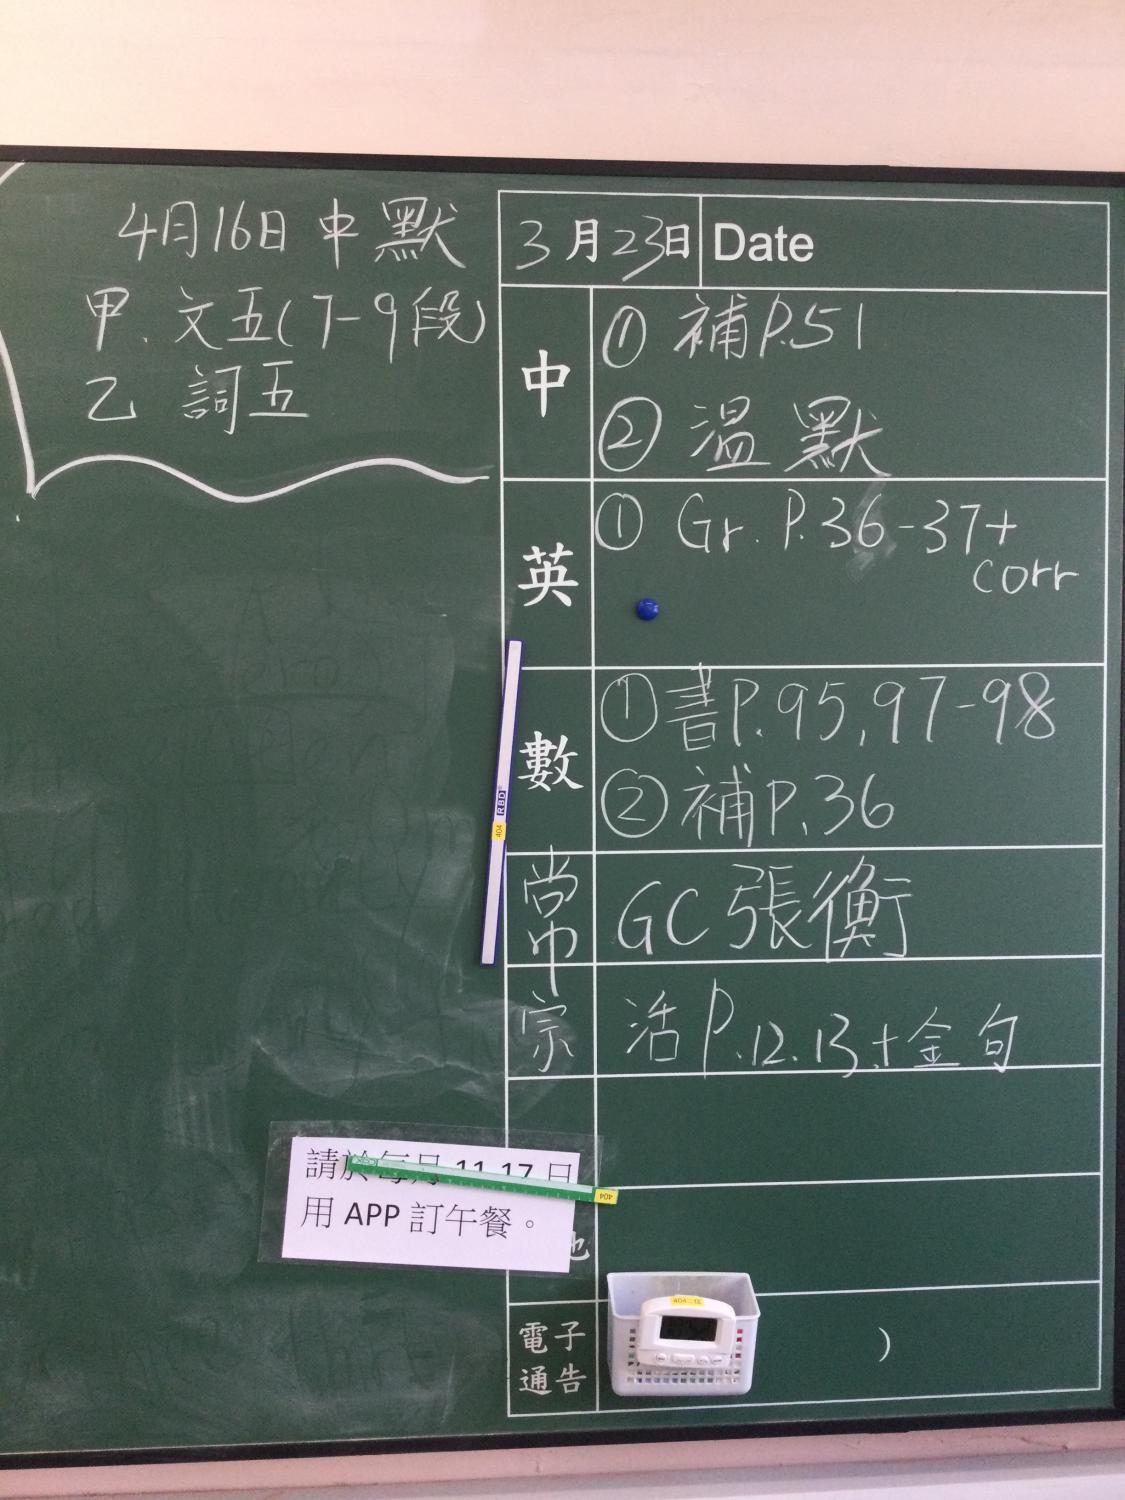 4月16日 中 默
甲. 文五(7-9段)
乙 詞五
3月23日 Date
中
① 補P.51
② 溫默
英
① Gr. P.36-37+
corr
數
①書P.95,97-98
②補P.36
常
GC 張衡
宗
活P.12.13.+金句
RBD
404
請於每月 11-17 日
用 APP 訂午餐。
404
他
404
電子
通告
)